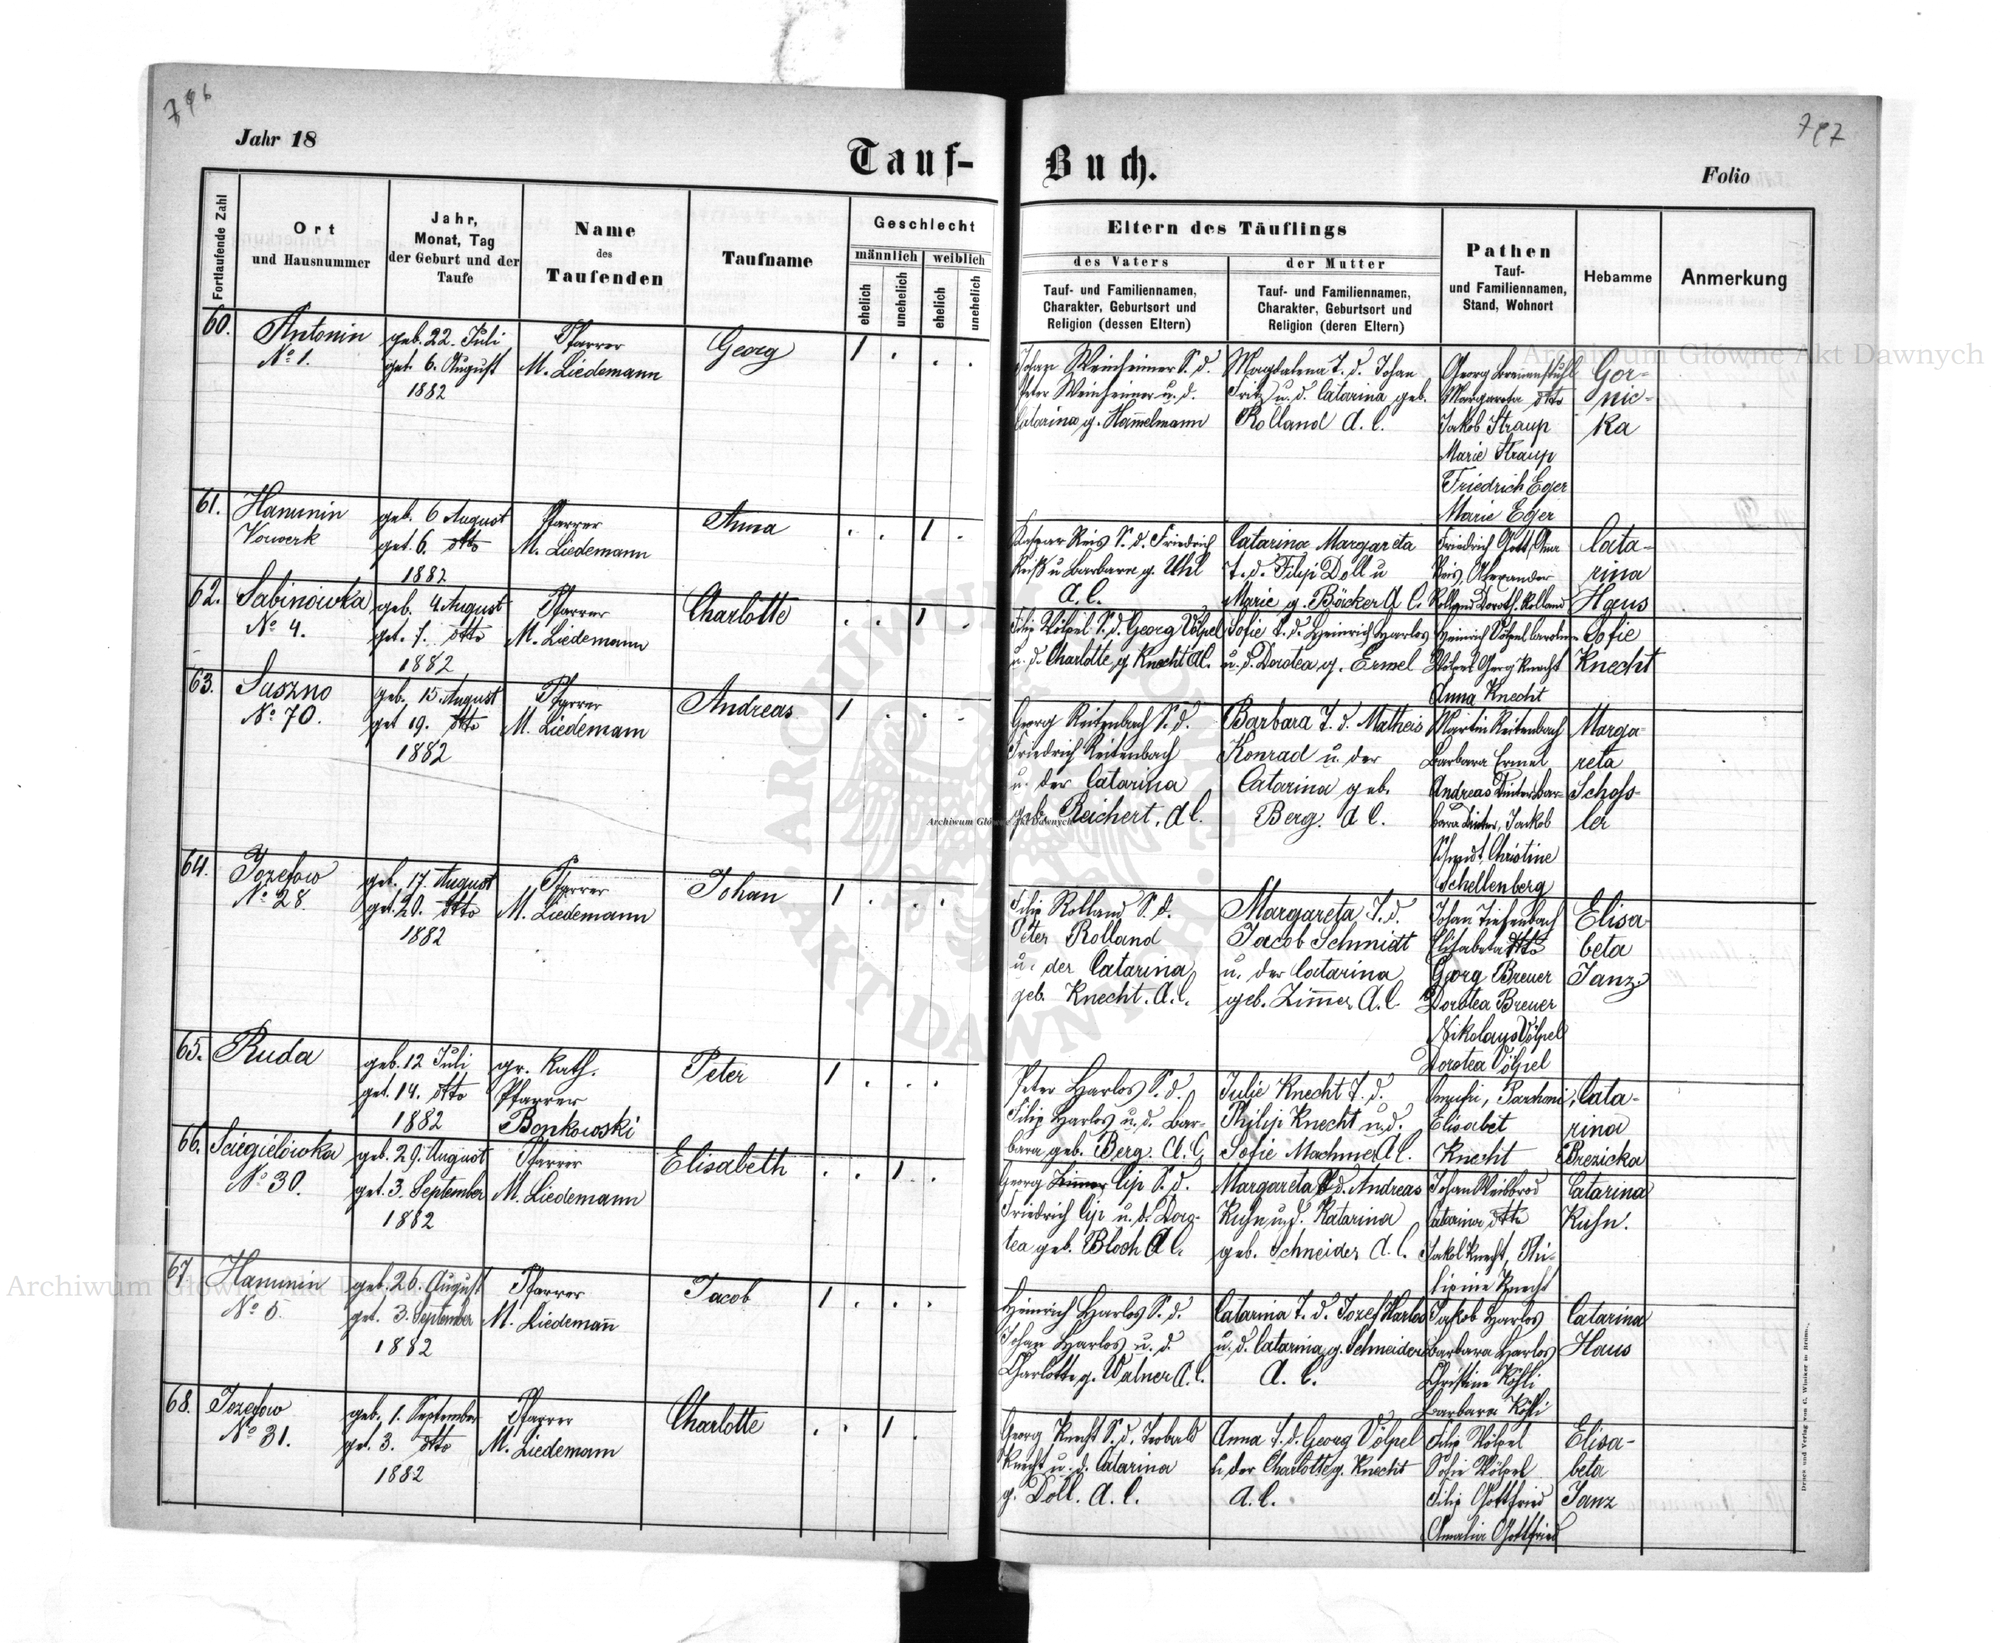 746
747
Jahr 18
Tauf-
Buch.
Folio
Fortlaufende Zahl
Ort
und Hausnummer
Jahr,
Monat, Tag
der Geburt und der
Taufe
Name
des
Taufenden
Taufname
Geschlecht
männlich
weiblich
ehelich
unehelich
ehelich
unehelich
Eltern des Täuflings
des Vaters
Tauf- und Familiennamen,
Charakter, Geburtsort und
Religion (dessen Eltern)
der Mutter
Tauf- und Familiennamen,
Charakter, Geburtsort und
Religion (deren Eltern)
Pathen
Tauf-
und Familiennamen,
Stand, Wohnort
Hebamme
Anmerkung
60.
Antonin
No 1.
geb. 22. Juli
get. 6. August
1882
Pfarrer
M. Liedemann
Georg
1 . . .
Johan Weinheimer S. d.
Peter Weinheimer u. d.
Catarina g. Hammelmann
Magdalena T. d. Johan
Fritz u. d. Catarina geb.
Rolland A. C.
Georg
Margareta dtto
Jakob Straup
Marie Straup
Friedrich Eger
Marie Eger
Gor-
nic-
ka
61.
Hanunin
Vorwerk
geb. 6 August
get. 6. dtto
1882
Pfarrer
M. Liedemann
Anna
. . 1 .
Kaspar Reis S. d. Friedrich
Reiß u Barbara g. Uhl
A. C.
Catarina Margareta
T. d. Filip Doll u
Marie g. Böcker A C.
Friedrich
Reis, Alexander
Rolland Doroth. Rolland
Cata-
rina
Haus
62.
Sabinówka
No 4.
geb. 4. August
get. 7. dtto
1882
Pfarrer
M. Liedemann
Charlotte
. . 1 .
Filip Völpel S. d. Georg Völpel
u. d. Charlotte g. Knecht AC.
Sofie T. d. Heinrich Harlos
u. d. Dorotea g. Ermel
Heinrich Völpel Caroline
Völpel Georg Knecht
Anna Knecht
Sofie
Knecht
63.
Suszno
No 70.
geb. 15. August
get 19. dtto
1882
Pfarrer
M. Liedemann
Andreas
1 . . .
Georg Reitenbach S. d.
Friedrich Reitenbach
u. der Catarina
geb. Reichert. A C.
Barbara T. d. Matheis
Konrad u. der
Catarina geb.
Berg. A C.
Martin Reitenbach
Barbara Ermel
Andreas Dinter, Bar-
bara Dinter, Jackob
Schmidt, Christine
Schellenberg
Marga-
reta
Schoss-
ler
64.
Jozefow
No 28.
geb. 17. August
get. 20. dtto
1882
Pfarrer
M. Liedemann
Johan
1 . . .
Filip Rolland S. d.
Peter Rolland
u. der Catarina
geb. Knecht. A. C.
Margareta T. d.
Jacob Schmidt
u. der Catarina
geb. Zimmer A. C.
Johan Tiefenbach
Elisabeta dtto
Georg Breuer
Dorotea Breuer
Nikolaus Völpel
Dorotea Völpel
Elisa
beta
Janz
65.
Ruda
geb. 12 Juli
get. 14. dtto
1882
gr. Kath.
Pfarrer
Bonkowski
Peter
1 . . .
Peter Harlos S. d.
Filip Harlos u. d. Bar-
bara geb. Berg. A. C.
Julie Knecht T. d.
Philip Knecht u. d.
Sofie Machmer A C.
Onufri, Parchoni,
Elisabet
Knecht
Cata-
rina
Brezicka
66.
Sciegielówka
No 30.
geb. 29. August
get. 3. September
1882
Pfarrer
M. Liedemann
Elisabeth
. . 1 .
Georg Zimmer Cip S. d.
Friedrich Cip u. d. Doro-
tea geb. Bloch A C.
Margareta T. d. Andreas
Kuhn u. d. Katarina
geb. Schneider A. C.
Johan Weissbrod
Catarina dtto
Jakob Knecht, Phi-
lipine Knecht
Catarina
Kuhn.
67
Hanunin
No 5.
geb. 26. August
get. 3. September
1882
Pfarrer
M. Liedemann
Jacob
1 . . .
Heinrich Harlos S. d.
Johan Harlos u. d
Charlotte g. Walner A. C.
Catarina T. d. Jozef Harlos
u. d. Catarina g. Schneider
A. C.
Jakob Harlos
Barbara Harlos
Christine Köhli
Barbara Köhli
Catarina
Haus
68.
Jozefow
No 31.
geb. 1. September
get. 3. dtto
1882
Pfarrer
M. Liedemann
Charlotte
. . 1 .
Georg Knecht S. d. Teobald
Knecht u. d. Catarina
g. Doll. A. C.
Anna T. d. Georg Völpel
u. der Charlotte g. Knecht
A. C.
Filip Völpel
Sofie Völpel
Filip Gottfried
Amalia Gottfried
Elisa-
beta
Janz
Archiwum Główne Akt Dawnych
Archiwum Główne Akt Dawnych
Archiwum Główne Akt Dawnych